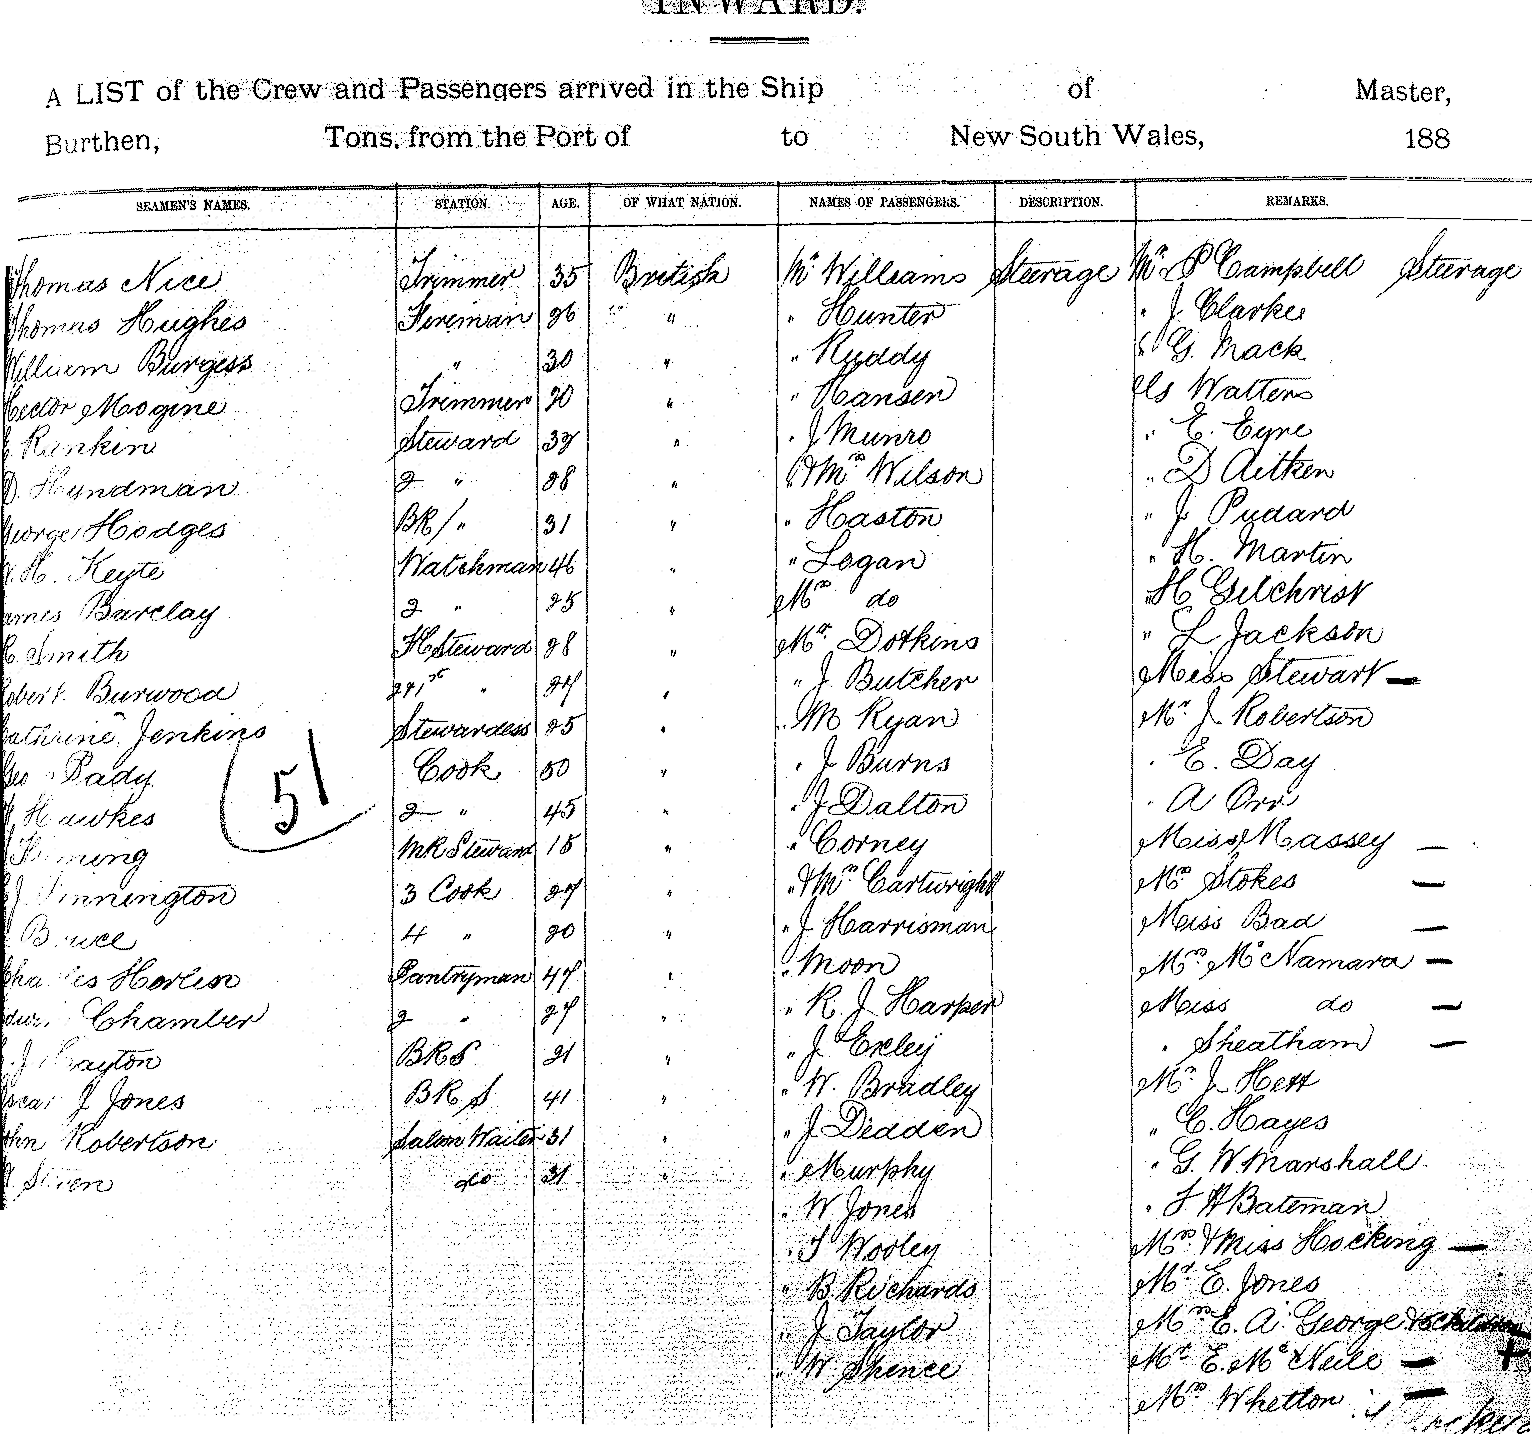 INWARD.
A LIST of the Crew and Passengers arrived in the Ship of Master,
Burthen, Tons, from the Port of to New South Wales, 188
SEAMEN'S NAMES. STATION. AGE. OF WHAT NATION. NAMES OF PASSENGERS. DESCRIPTION. REMARKS.
Thomas Nice Trimmer 35 British Mr Williams Steerage Mr P Campbell Steerage
Thomas Hughes Fireman 26 " " Hunter " J Clarke
William Burgess " 30 " " Ruddy G. Mack
Hector Mogine Trimmer 20 " " Hansen Watters
Rankin Steward 39 " " J Munro " E. Eyre
D. Hyndman 2 " 28 " & Mrs Wilson " D Aitken
George Hodges BR / " 31 " " Haston " J Pudard
H. Keyte Watchman 46 " " Logan " H. Martin
James Barclay 2 " 25 " Mrs do " H Gilchrist
Smith F H Steward 28 " Mr Dotkins " L Jackson
Robert Burwood " 27 " " J Butcher Miss Stewart —
Cathrine Jenkins Stewardess 25 " " M Ryan Mr J Robertson
Geo Pady Cook 50 " " J Burns " E. Day
51
Hawkes 2 " 45 " " J Dalton " A Orr
MR Steward 15 " " Corney Miss Massey —
3 Cook 27 " " & Mrs Cartwright Mrs Stokes —
4 " 20 " " J Harrisman Miss Bad —
Charles Horlin Pantryman 47 " " Moon Mrs McNamara —
Chamber 2 " 27 " " R. J Harper Miss do —
BRS 21 " " J Exley " Sheatham —
Oscar J Jones BR S 41 " " W. Bradley Mr J Hett
John Robertson Saloon Waiter 31 " " J Dedden " C. Hayes
do 31 " " Murphy " G. W Marshall
" W Jones " F H Bateman
" T Wooley Mrs & Miss Hocking —
" B Richards Mr E. Jones
" J Taylor Mrs E. A. George & children
" W Spence Mr E. McNeile —
Mrs Whetton —